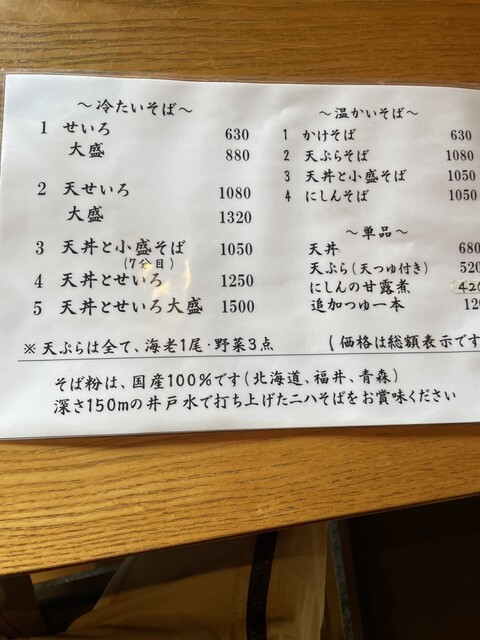 ～冷たいそば～
1 せいろ 630
大盛 880
2 天せいろ 1080
大盛 1320
3 天丼と小盛そば 1050
(7分目)
4 天丼とせいろ 1250
5 天丼とせいろ大盛 1500
～温かいそば～
1 かけそば 630
2 天ぷらそば 1080
3 天丼と小盛そば 1050
4 にしんそば 1050
～単品～
天丼 680
天ぷら(天つゆ付き) 520
にしんの甘露煮 420
追加つゆ一本 120
※ 天ぷらは全て、海老1尾・野菜3点 (価格は総額表示です
そば粉は、国産100%です(北海道、福井、青森)
深さ150mの井戸水で打ち上げた二八そばをお賞味ください